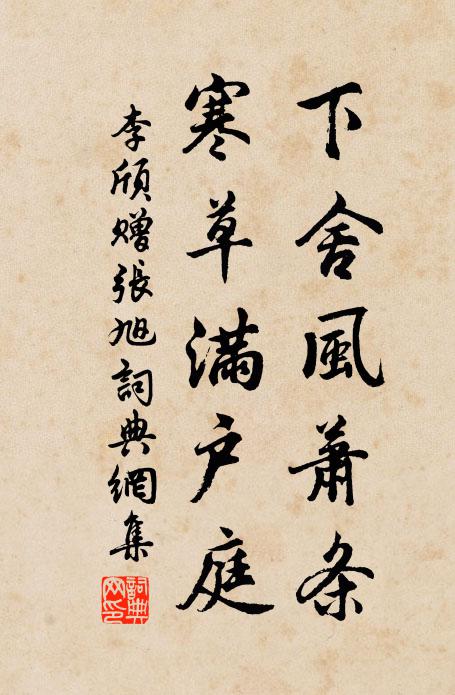 下舍風蕭条
寒草滿户庭
李頎贈張旭詞典網集
詞典网印